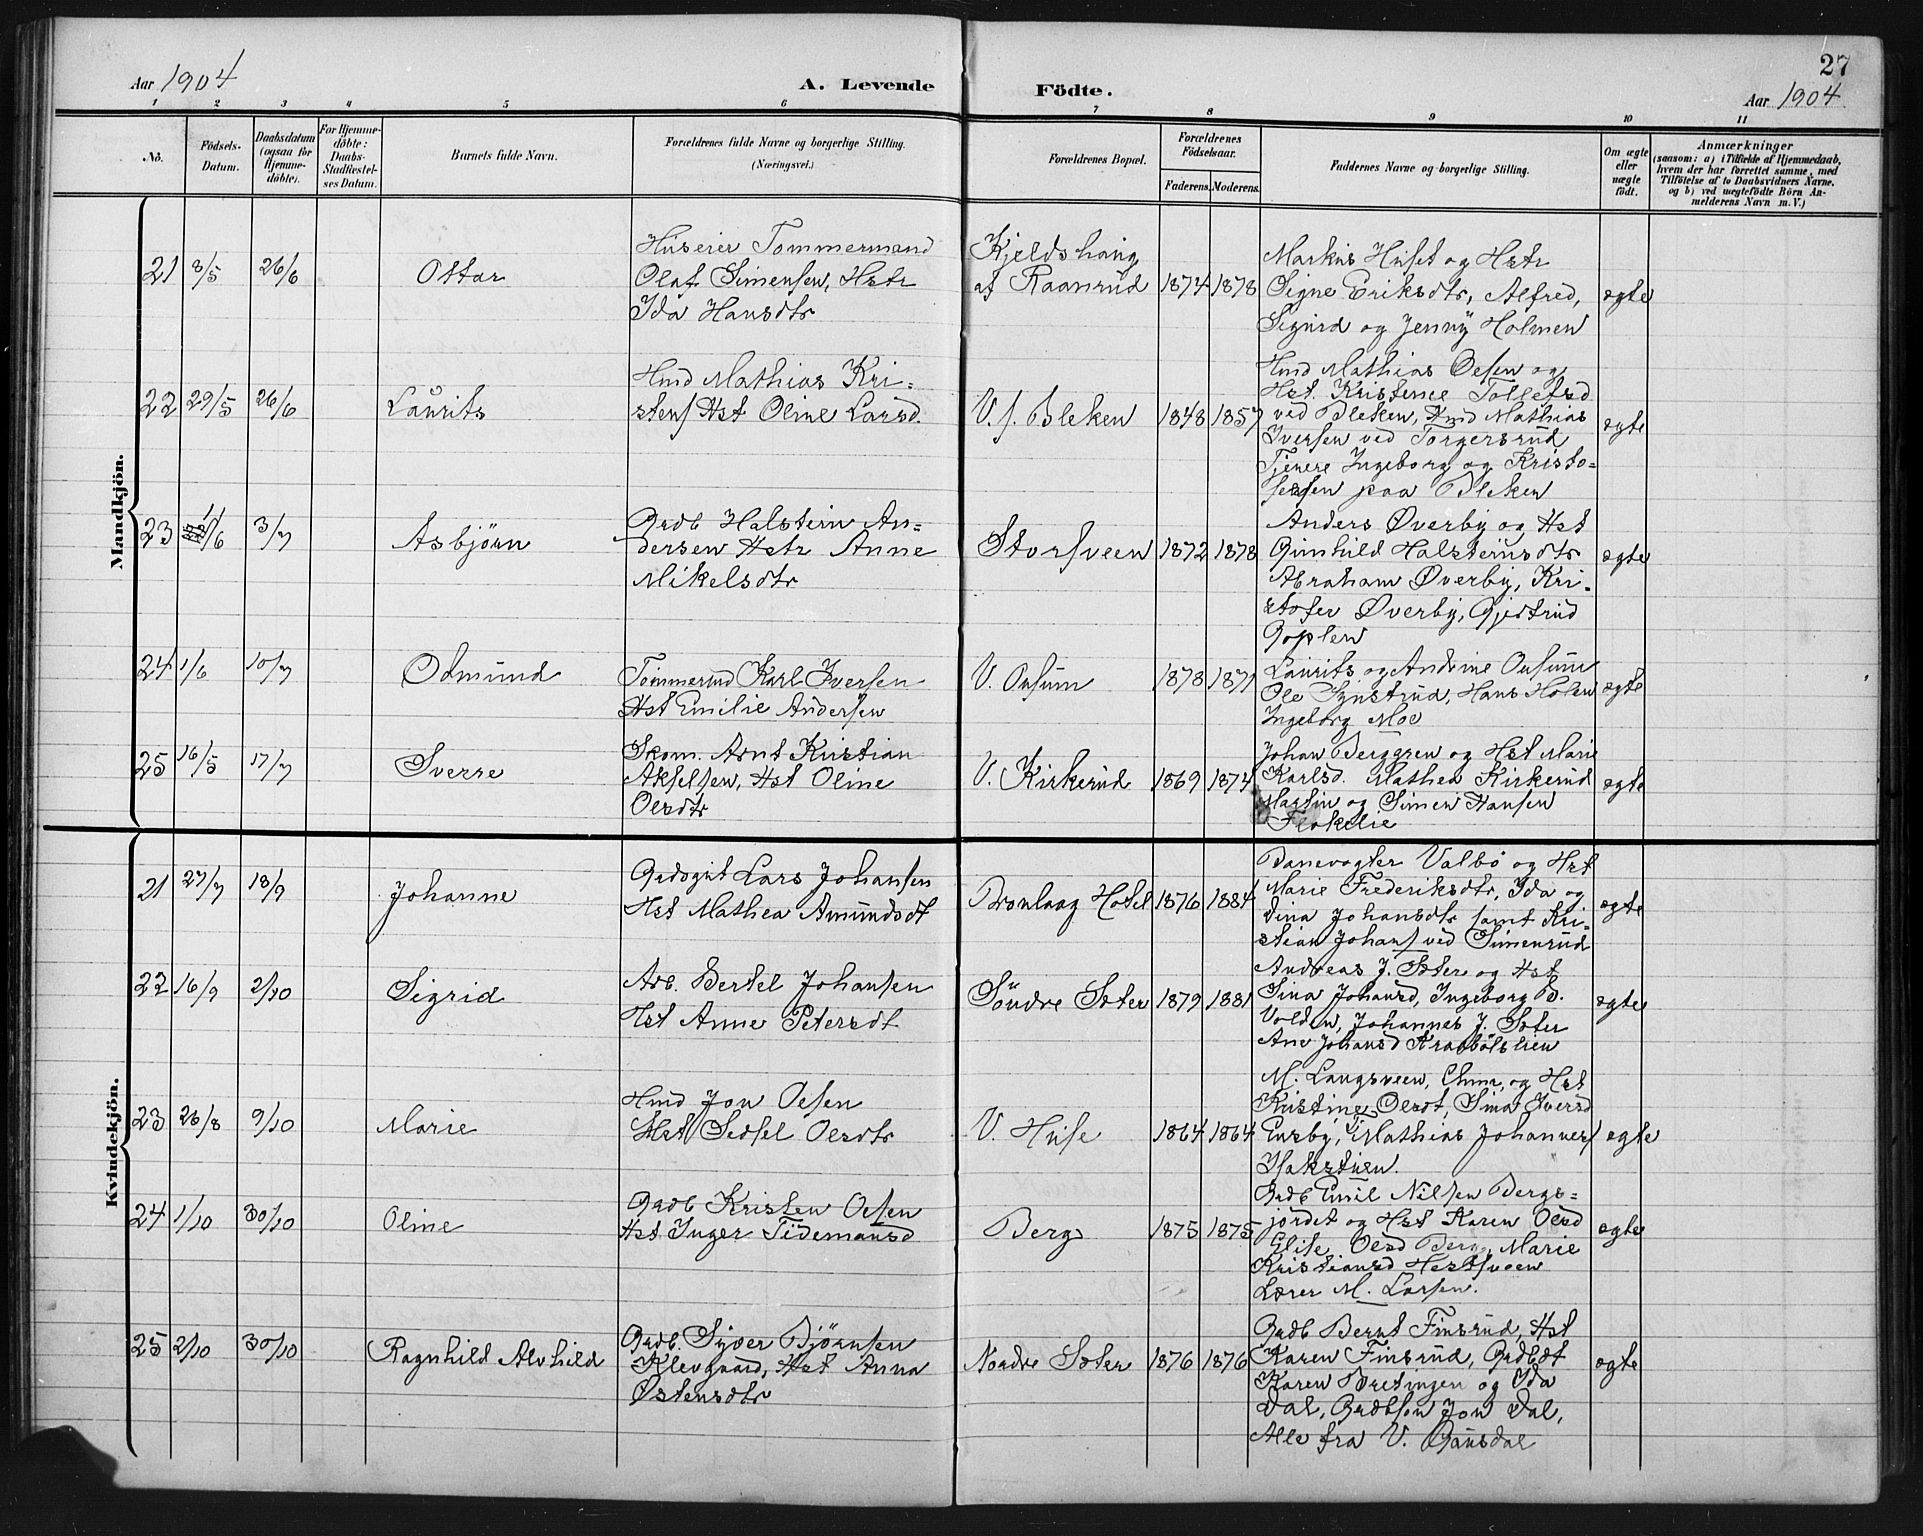 27
Aar 1904
A. Levende Födte.
Aar 1904
1 2 3 4 5 6 7 8 9 10 11
No.
Födsels-
Datum.
Daabsdatum
(ogsaa for
Hjemme-
döbte).
For Hjemme-
döbte:
Daabs-
Stadfæstel-
ses Datum.
Barnets fulde Navn.
Forældrenes fulde Navne og borgerlige Stilling.
(Næringsvei.)
Forældrenes Bopæl.
Forældrenes
Födselsaar.
Faderens. Moderens.
Faddernes Navne og borgerlige Stilling.
Om ægte
eller
uægte
födt.
Anmærkninger
(saasom: a) i Tilfælde af Hjemmedaab,
hvem der har forrettet samme, med
Tilföielse af to Daabsvidners Navne,
og b) ved uægtefödte Börn An-
melderens Navn m. V.)
Mandkjön.
21 8/5 26/6 Ottar
Huseier Tømmermand
Olaf Simensen, Hstr
Ida Hansdtr
Kjeldshaug
af Raanrud
1874 1878
Markus Huset og Hstr
Signe Eriksdtr, Alfred,
Sigurd og Jenny Holmen
ægte
22 29/5 26/6 Laurits
Hmd Mathias Kri-
stens Hst Oline Larsd.
V. f. Bleken
1848 1857
Hmd Mathias Olsen og
Hst. Kristence Tollefsd
ved Bleken, Hmd Mathias
Iversen ved Torgersrud
Tjenere Ingeborg og Kristo-
fersen paa Bleken
ægte
23 1/6 3/7 Asbjørn
Grdb Halstein An-
dersen Hstr Anne
Mikelsdtr
Storsveen
1872 1878
Anders Øverby og Hst
Gunhild Halsteinsdtr
Abraham Øverby, Kri-
stofer Øverby, Gjertrud
Goplen
ægte
24 1/6 10/7 Odmund
Tømmermd Karl Iversen
Hst Emilie Andersen
V. Onsum
1878 1871
Laurits og Andrine Onsum
Ole Synstrud, Hans Holen
Ingeborg Moe
ægte
25 16/5 17/7 Sverre
Skom. Arnt Kristian
Akselsen, Hst Oline
Olsdtr
V. Kirkerud
1869 1874
Johan Berggren og Hst Marie
Karlsd. Mathea Kirkerud
Martin og Simen Hansen
Flokelie
ægte
Kvindekjön.
21 27/7 18/9 Johanne
Lars Johansen
Hst Mathea Amundsdt
Hotel
1876 1884
Banevogter Valbø og Hst
Marie Frederiksdtr, Ida og
Dina Johansdtr samt Kri-
stian Johans ved Simenrud
ægte
22 16/9 2/10 Sigrid
Arb. Bertel Johansen
Hst Anne Petersdt
Söndre Sæter
1879 1881
Andreas J. Sæter og Hst
Sina Johansd, Ingeborg B.
Volden, Johannes J. Sæter
Ane Johansd Krabbölslien
ægte
23 28/8 9/10 Marie
Hmd Jon Olsen
Hst Sidsel Olsdtr
V. Huse
1864 1864
M. Langsveen, og Hst
Kristine Olsdt, Sina Iversd
Enebÿ, Mathias Johannes
Isakstuen.
ægte
24 1/10 30/10 Oline
Grdb Kristen Olsen
Hst Inger Tidemansd
Berg
1875 1875
Grdb Emil Nilsen Bergs-
jordet og Hst Karen Olsd
Elise Olsd Berg, Marie
Kristiansd Hestsveen
Lærer M. Larsen.
ægte
25 2/10 30/10 Ragnhild Alvhild
Grdb. Syver Bjørnsen
Klevgaard, Hst Anna
Østensdtr
Nordre Sæter
1876 1876
Grdb Bernt Finsrud, Hst
Karen Finsrud, Grdbdt
Karen Bretingen og Ida
Dal, Grdbsøn Jon Dal,
Alle fra V. Gausdal
ægte